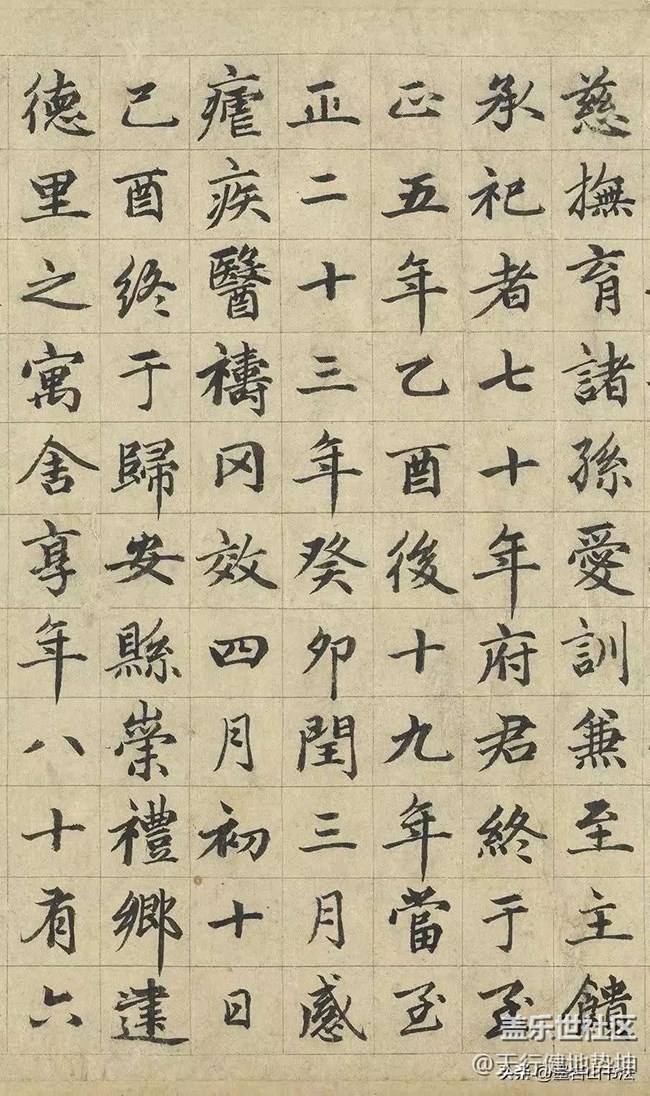 慈撫育諸孫愛訓兼至主饋
承祀者七十年府君終于至
正五年乙酉後十九年當至
正二十三年癸卯閏三月感
瘧疾醫禱罔效四月初十日
己酉終于歸安縣崇禮鄉達
德里之寓舍享年八十有六
盖乐世社区
@天行健地势坤
头条@墨君山书法